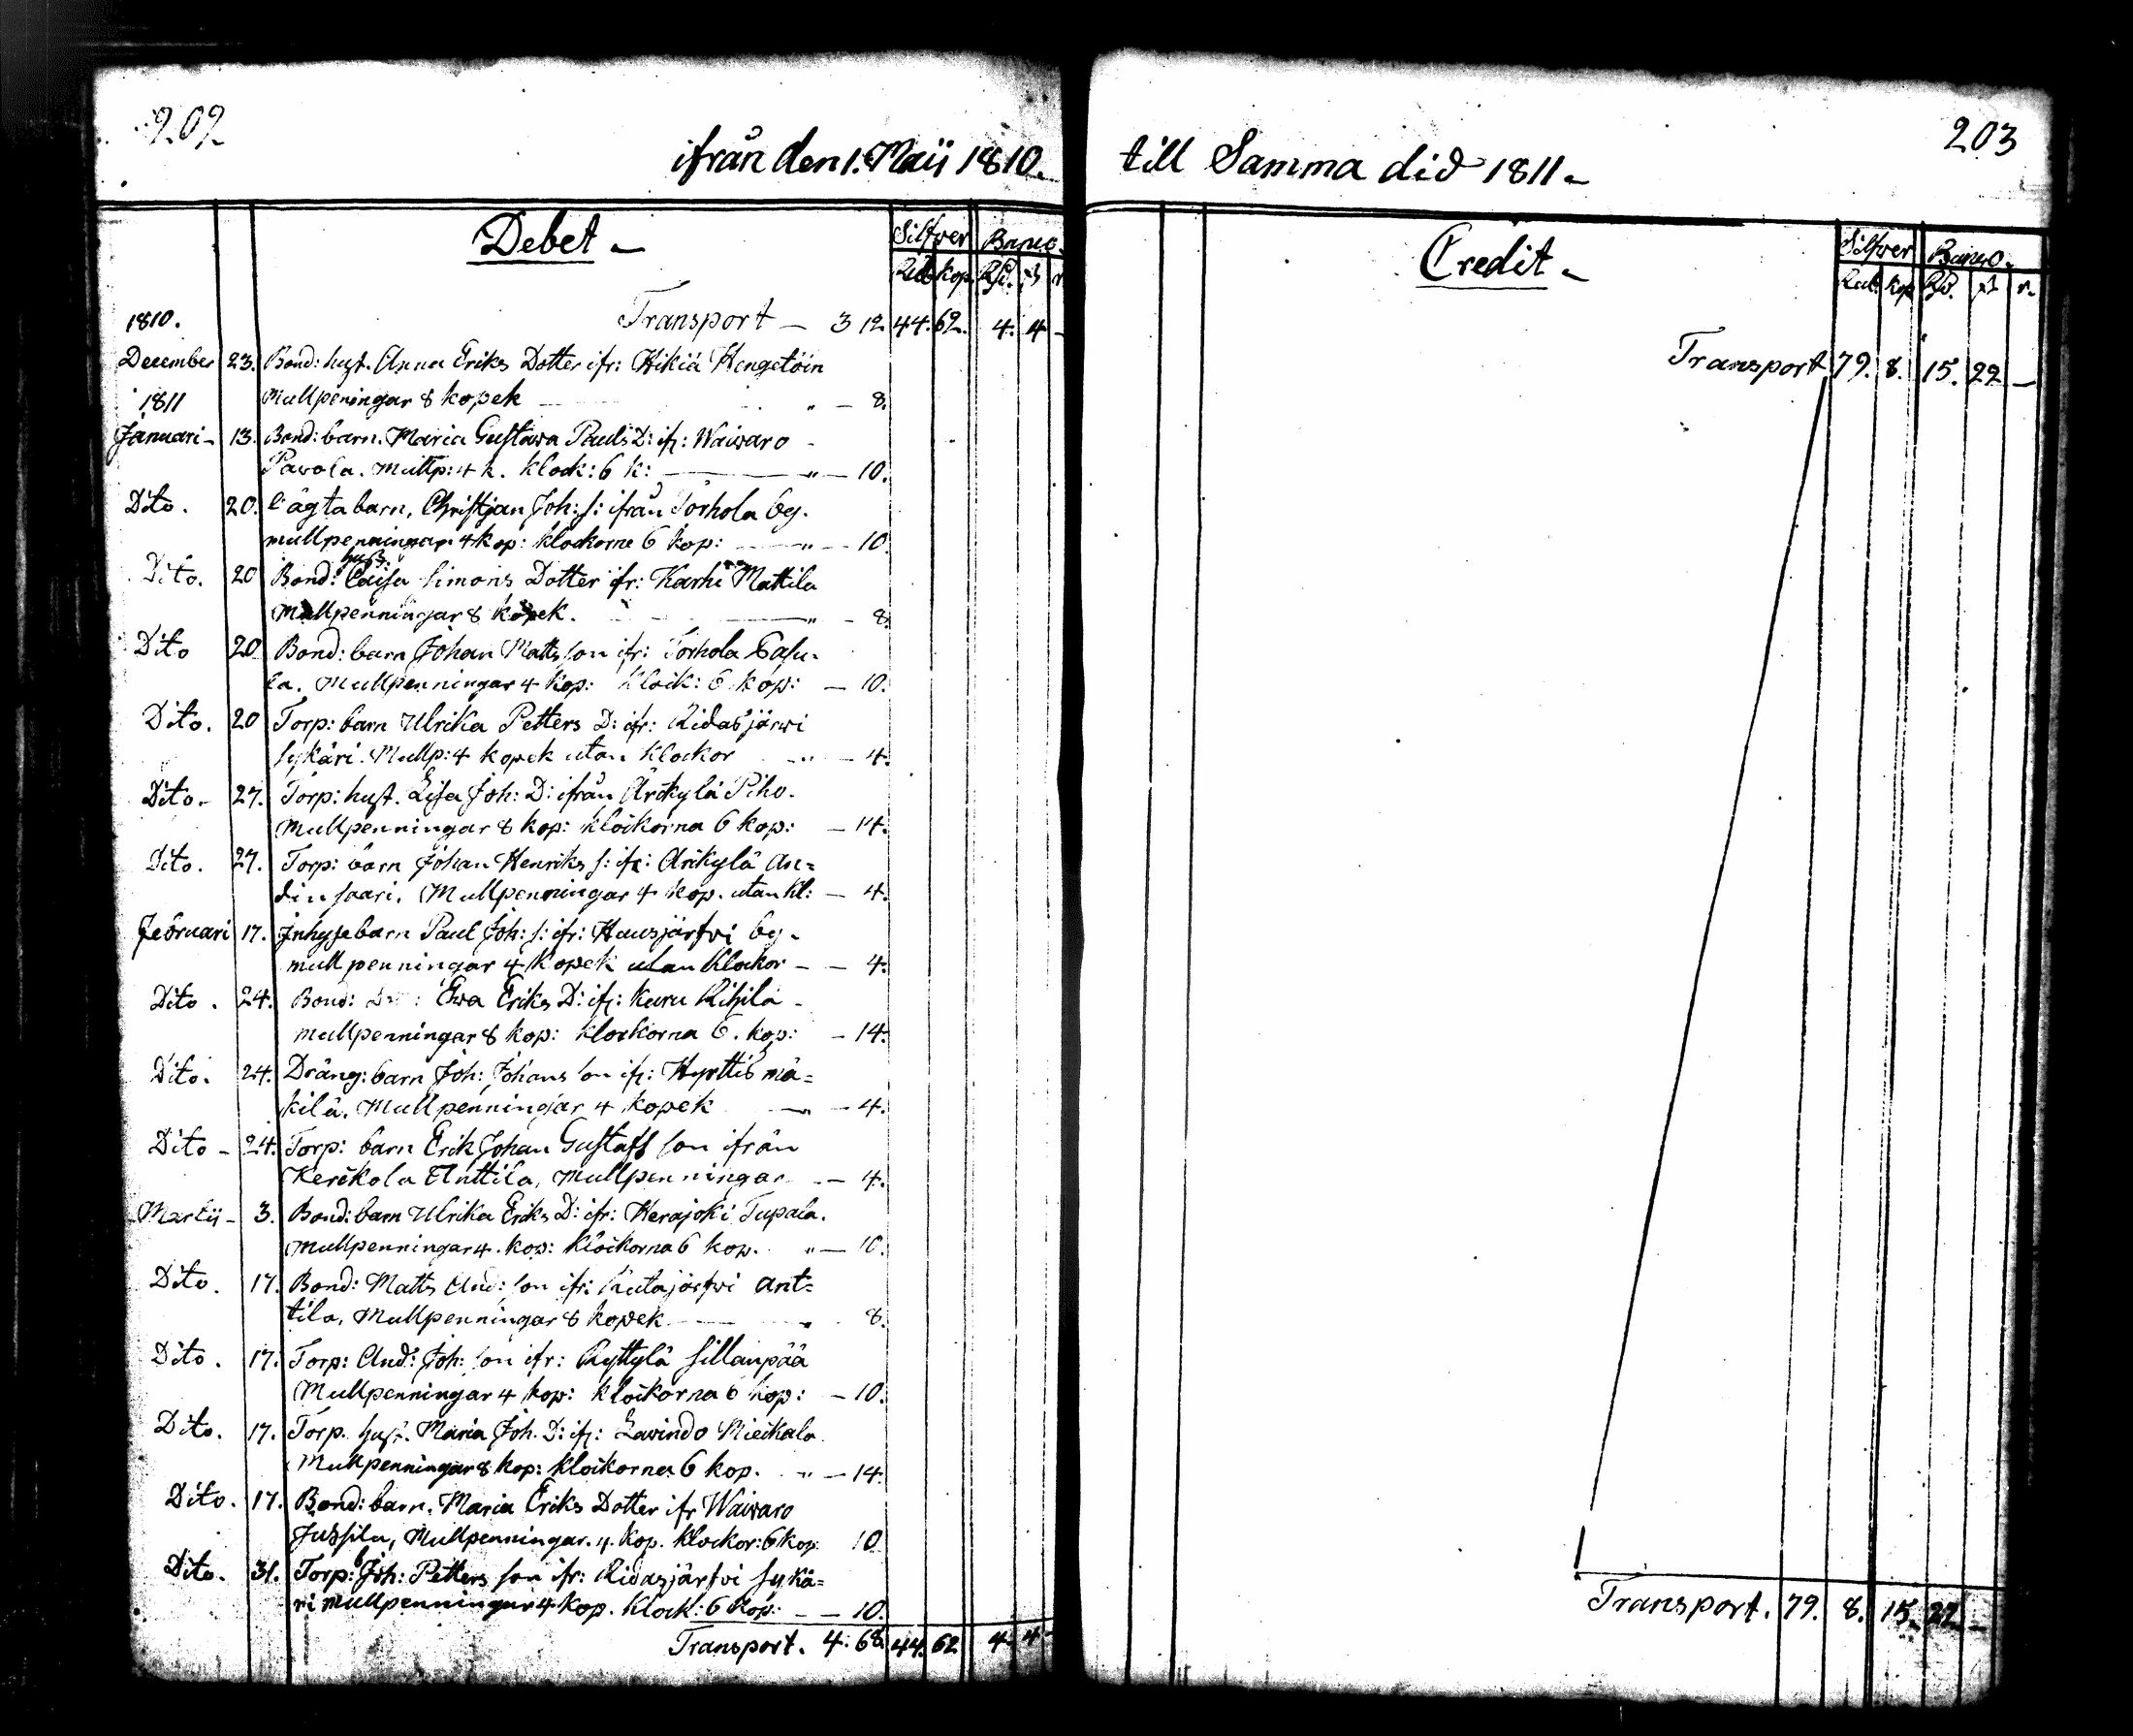 202
ifrån den 1. Maii 1810.
Debet
Silfver Banco.
Rub kop. Rd. ß r.
1810. Transport 3 12. 44. 62. 4. 4 -
December 23. Bond: hust. Anna Eriks Dotter ifr: Hikiä Hengetöin
Mullpeningar 8 kopek " - 8.
1811
Januari - 13. Bond: barn. Maria Gustava Pauls D: ifr: Waivaro
Pavola. Mullp: 4 k. klock: 6 k: " - 10.
Dito. 20. Oägta barn, Christjan Joh: s: ifrån Torhola by.
mullpenningar 4 kop: klockorne 6 kop: " - 10
Dito. 20 Bond: hust: Caisa Simons Dotter ifr: Karhi Mattila
Mullpenningar 8 kopek. " - 8.
Dito 20 Bond: barn Johan Matts son ifr: Torhola
la. Mullpenningar 4 kop: klock: 6 kop: - 10.
Dito. 20 Torp: barn Ulrika Petters D: ifr: Ridasjärwi
Sykäri. Mullp: 4 kopek utan klockor " - 4.
Dito. 27. Torp: hust. Lisa Joh: D: ifrån Arikylä Piho.
Mullpenningar 8 kop: klockorna 6 kop: - 14.
Dito. 27. Torp: barn Johan Henriks s: ifr: Arikylä An=
din saari. Mullpenningar 4 kop. utan kl: - 4.
Februari 17. Inhysebarn Paul Joh: s: ifr: Hausjärfvi by.
mullpenningar 4 kopek utan klockor - - 4.
Dito. 24. Bond: Ewa Eriks D: ifr: Kuru Rihilä
mullpenningar 8 kop: klockorna 6. kop: - 14.
Dito. 24. Dräng: barn Joh: Johans son ifr: Hyvttis mä=
kilä. Mullpenningar 4 kopek " - 4.
Dito - 24. Torp: barn Erik Johan Gustafs son ifrån
Kerikola Anttila, Mullpenningar - 4.
Martii - 3. Bond: barn Ulrika Eriks D: ifr: Herajoki Tupala.
Mullpenningar 4. kop: klockorna 6 kop. " - 10.
Dito. 17. Bond: Matts And: son ifr: Kutajärfvi Ant=
tila, Mullpenningar 8 kopek " 8.
Dito. 17. Torp: And: Joh: son ifr: Ryttylä Sillanpää
Mullpenningar 4 kop: klockorna 6 kop: - 10.
Dito. 17. Torp. hust. Maria Joh. D: ifr: Lavindo Nieikala
Mullpenningar 8 kop: klockorna 6 kop. " - 14.
Dito. 17. Bond: barn. Maria Eriks Dotter ifr Waivaro
Jussila, Mullpenningar. 4. kop. klockor: 6 kop. 10
Dito. 31. Torp: b Joh: Petters son ifr: Ridasjärfvi Sykä=
ri Mullpenningar 4 kop. klock: 6 kop: - - 10.
Transport. 4. 68. 44. 62 4. 4 -
203
till Samma did 1811.
Credit
Silfver Banco.
Rub. kop Rd. ß r.
Transport 79. 8. 15. 22 -
Transport. 79. 8. 15. 22 -